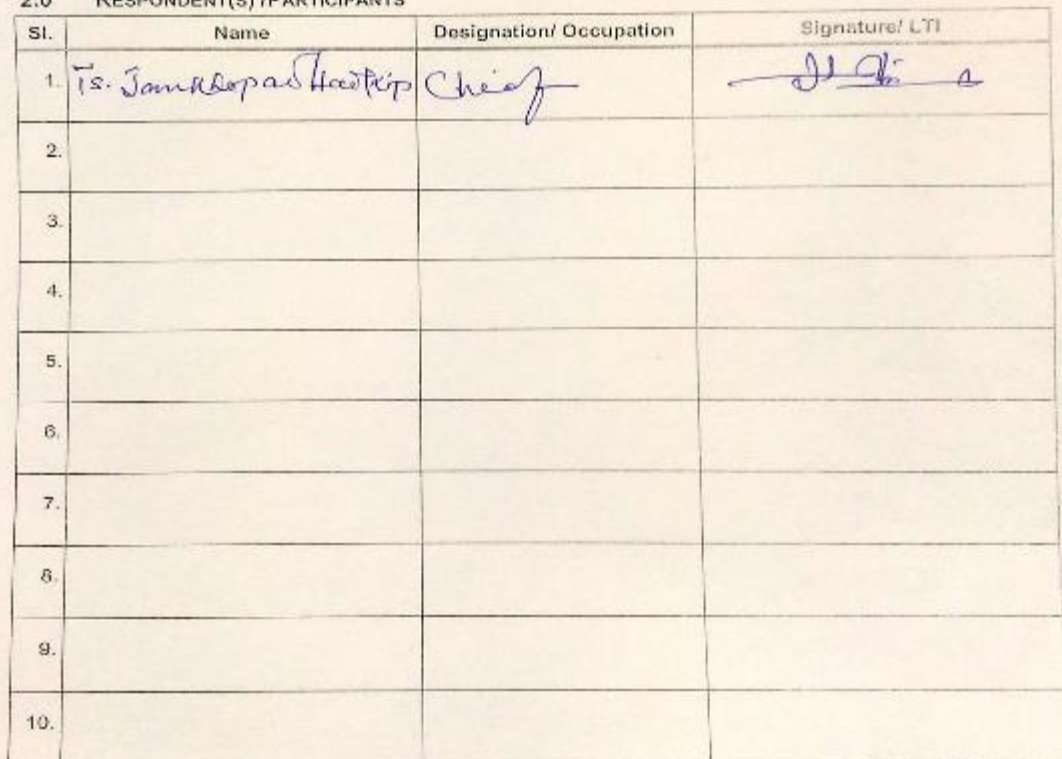 2.0 RESPONDENT(S) /PARTICIPANTS
Sl. Name Designation/ Occupation Signature/ LTI
1. Ts. Haokip Chief
2.
3.
4.
5.
6.
7.
8.
9.
10.